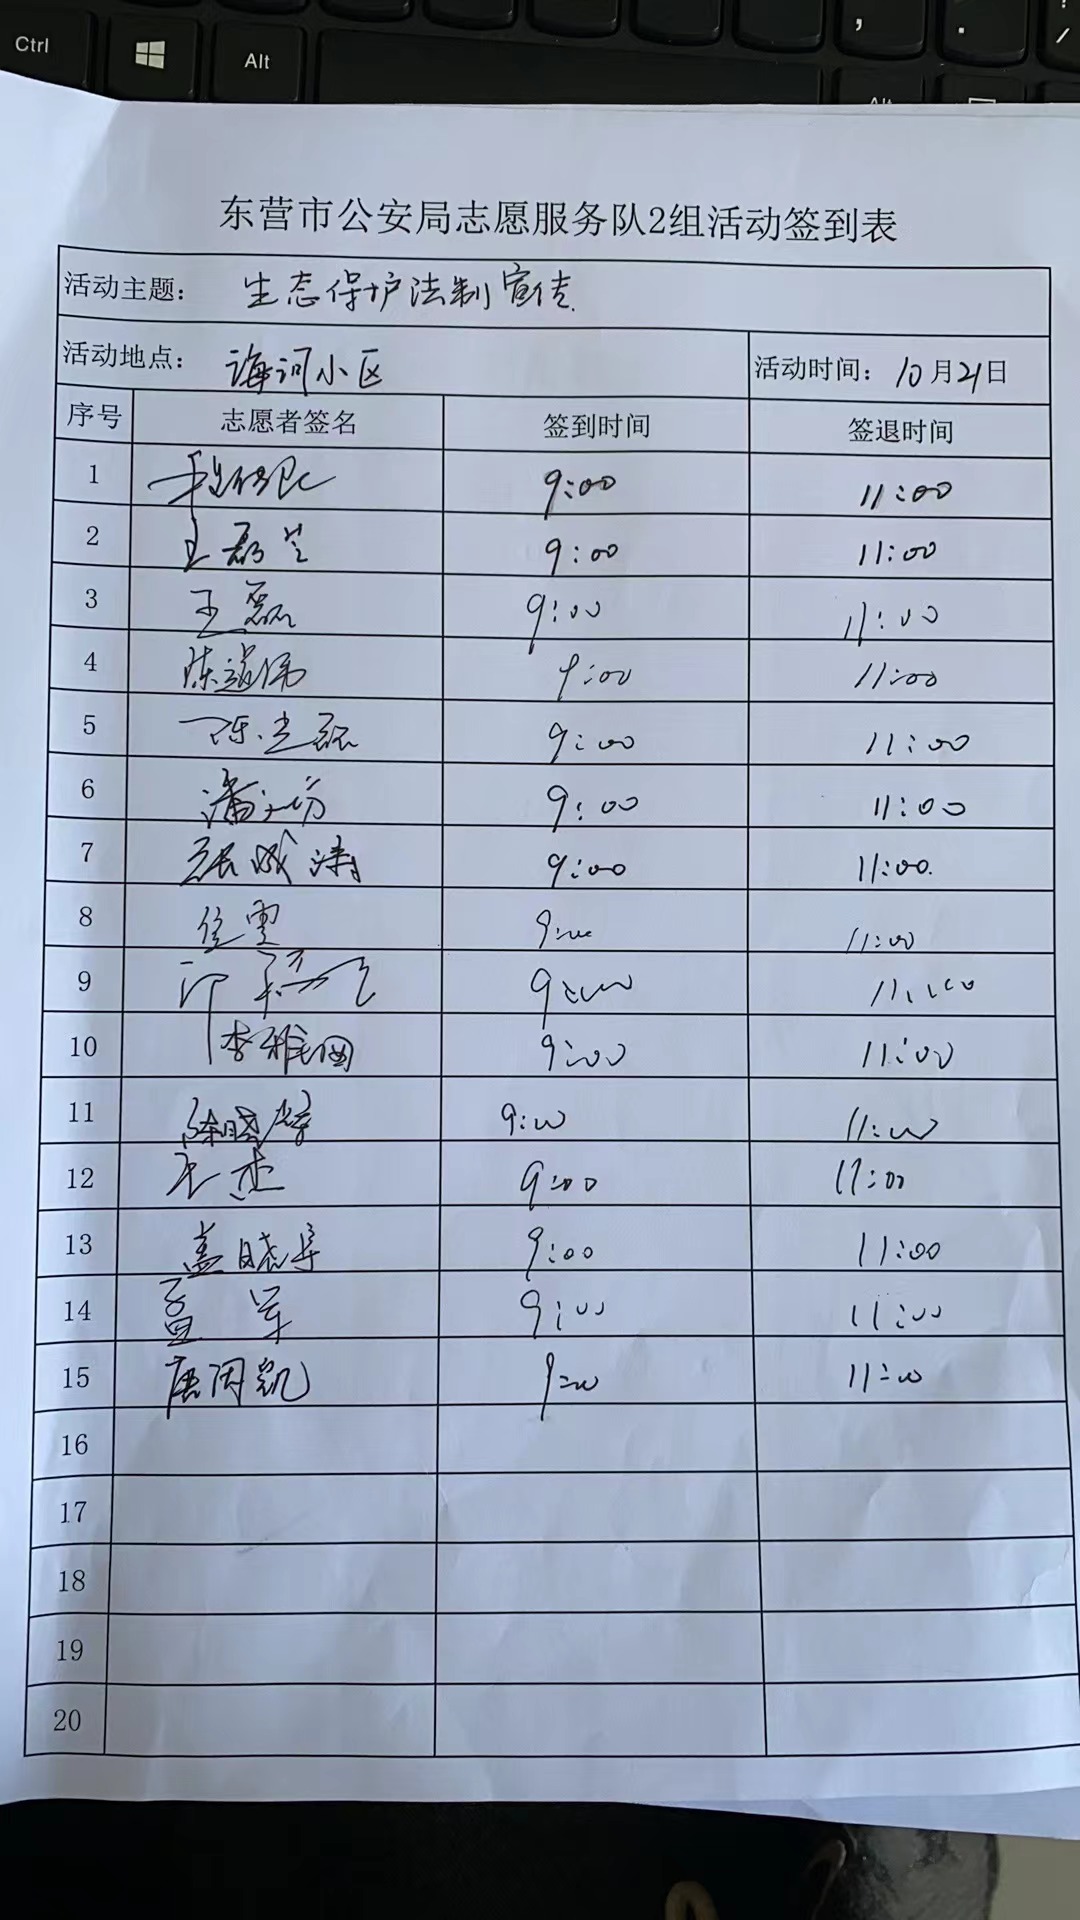 Ctrl Alt , . /
Alt
东营市公安局志愿服务队2组活动签到表
活动主题： 生态保护法制宣传
活动地点： 海河小区 活动时间： 10月21日
序号 志愿者签名 签到时间 签退时间
1 9:00 11:00
2 王磊 9:00 11:00
3 王磊 9:00 11:00
4 陈道伟 9:00 11:00
5 陈光磊 9:00 11:00
6 潘 9:00 11:00
7 张成涛 9:00 11:00
8 任雷 9:00 11:00
9 9:00 11:00
10 李雅国 9:00 11:00
11 陈晓 9:00 11:00
12 杰 9:00 11:00
13 盖晓 9:00 11:00
14 孟军 9:00 11:00
15 唐闵凯 9:00 11:00
16
17
18
19
20